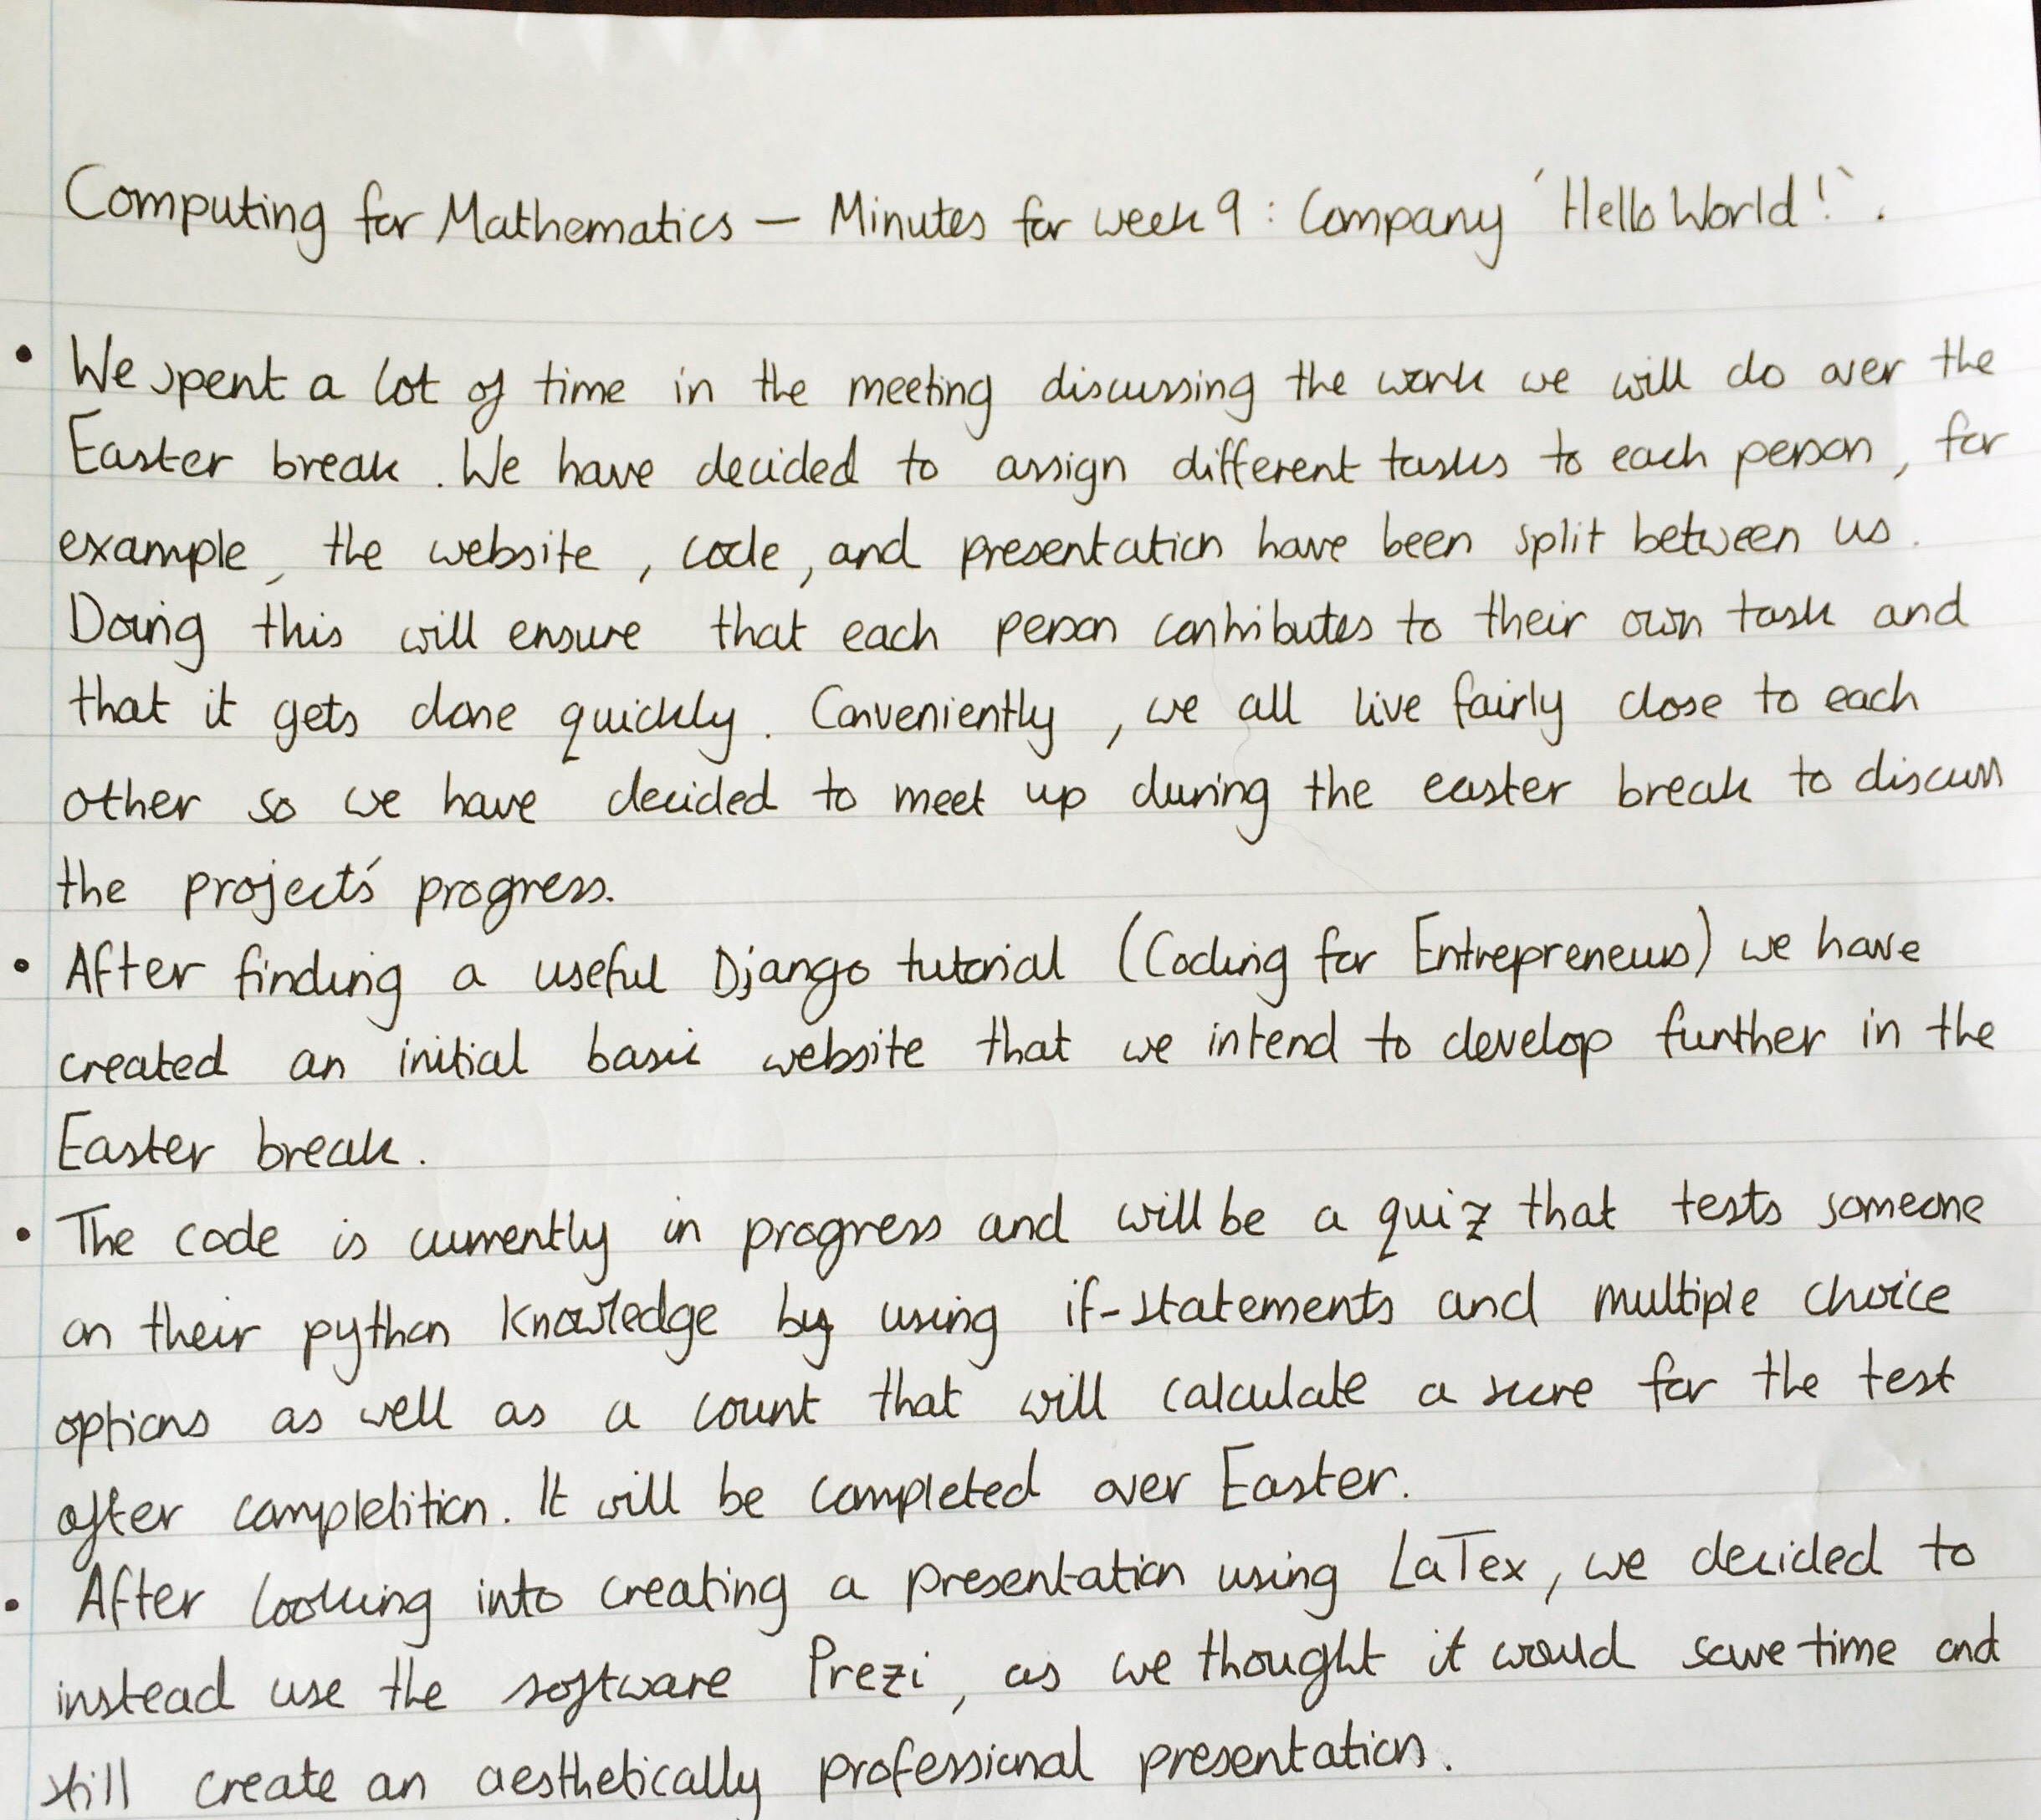 Computing for Mathematics — Minutes for week 9 : Company 'Hello World!'.
• We spent a lot of time in the meeting discussing the work we will do over the
Easter break. We have decided to assign different tasks to each person, for
example, the website, code, and presentation have been split between us.
Doing this will ensure that each person contributes to their own task and
that it gets done quickly. Conveniently, we all live fairly close to each
other so we have decided to meet up during the easter break to discuss
the project's progress.
• After finding a useful Django tutorial (Coding for Entrepreneurs) we have
created an initial basic website that we intend to develop further in the
Easter break.
• The code is currently in progress and will be a quiz that tests someone
on their python knowledge by using if-statements and multiple choice
options as well as a count that will calculate a score for the test
after completition. It will be completed over Easter.
• After looking into creating a presentation using LaTex, we decided to
instead use the software Prezi, as we thought it would save time and
still create an aesthetically professional presentation.